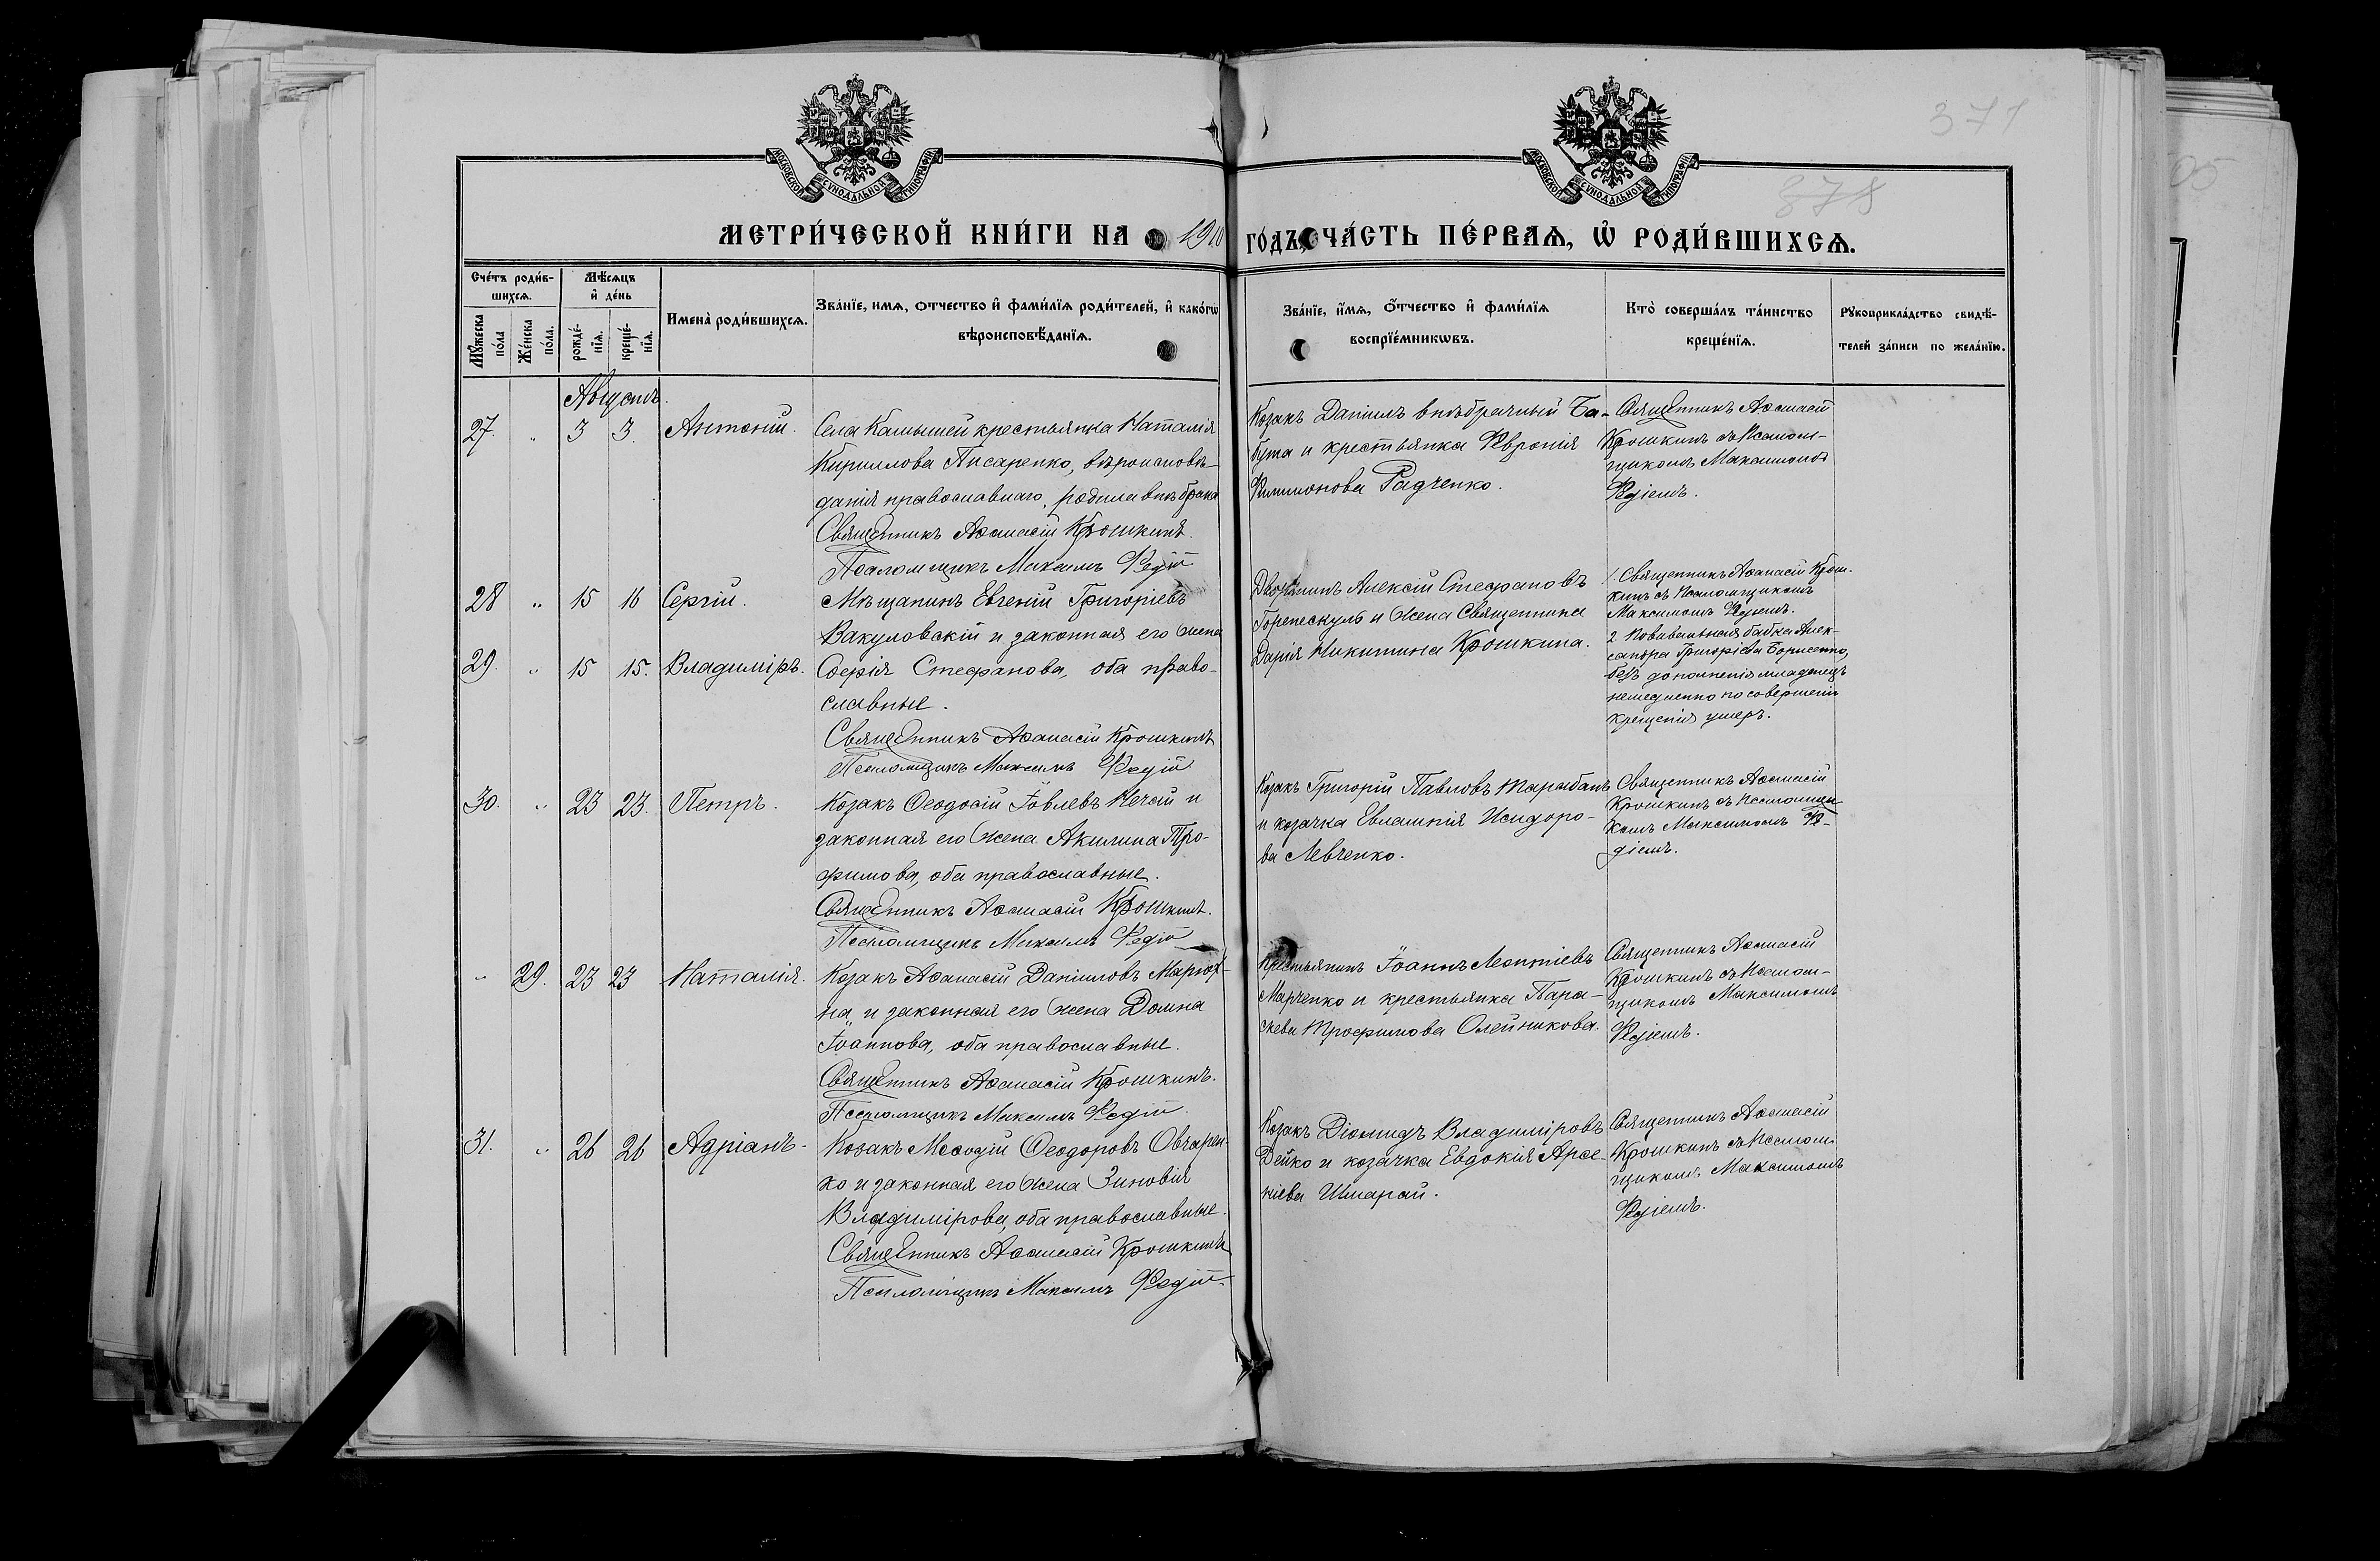 371
378
МОСКОВСКОЙ СѴНОДАЛЬНОЙ ТИПОГРАФІИ
МОСКОВСКОЙ СѴНОДАЛЬНОЙ ТИПОГРАФІИ
МЕТРИ́ЧЕСКОЙ КНИ́ГИ НА 1910 ГО́ДЪ, ЧА́СТЬ ПЕ́РВАѦ, Ѡ҆ РОДИ́ВШИХСѦ.
Сче́тъ роди́в-
шихсѧ.
Мꙋ́жеска по́ла
Же́нска по́ла.
Мѣ́сѧцъ
и҆ де́нь
рожде́-
нїѧ.
креще́-
нїѧ.
Имена̀ роди́вшихсѧ.
Зва́нїе, имѧ, отчество и҆ фами́лїѧ роди́телей, и҆ како́гѡ
вѣроисповѣ́данїѧ.
Зва́нїе, и҆́мѧ, о҆́тчество и҆ фами́лїѧ
воспрїе́мникѡвъ.
Кто̀ соверша́лъ та́инство
креще́нїѧ.
Рꙋкоприкла́дство свидѣ́-
телей за́писи по жела́нїю.
Августъ.
27. " 3 3. Антоній.
Села Камышей крестьянка Наталія
Кириллова Писаренко, вѣроисповѣ-
данія православнаго, родила внѣ брака
Священникъ Аѳанасій Крошкинъ.
Псаломщикъ Максимъ Федій
Козакъ Даніилъ внѣбрачный Ба-
бута и крестьянка Февронія
Филимонова Радченко.
Священникъ Аѳанасій
Крошкинъ съ Псалом-
щикомъ Максимомъ
Федіемъ.
28 " 15 16 Сергій.
29. " 15 15. Владиміръ.
Мѣщанинъ Евгеній Григоріевъ
Вакуловскій и законная его жена
Софія Стефанова, оба право-
славные.
Священникъ Аѳанасій Крошкинъ
Псаломщикъ Максимъ Федій
Дворянинъ Алексій Стефановъ
Горенескуль и жена Священника
Дарія Никитина Крошкина.
1. Священникъ Аѳанасій Крош-
кинъ съ Псаломщикомъ
Максимомъ Федіемъ.
2. Повивальная бабка Алек-
сандра Григоріева Борисенко,
безъ дополненія младенецъ
немедленно по совершеніи
крещенія умеръ.
30. " 23 23. Петръ.
Козакъ Ѳеодосій Іовлевъ Нечай и
законная его жена Акилина Тро-
фимова, оба православные.
Священникъ Аѳанасій Крошкинъ.
Псаломщикъ Максимъ Федій
Козакъ Григорій Павловъ Тарабанъ
и козачка Евлампія Исидоро-
ва Левченко.
Священникъ Аѳанасій
Крошкинъ съ Псаломщи-
комъ Максимомъ Фе-
діемъ.
" 29. 23 23 Наталія.
Козакъ Аѳанасій Даніиловъ
и законная его жена Домна
Іоаннова, оба православные.
Священникъ Аѳанасій Крошкинъ.
Псаломщикъ Максимъ Федій
Крестьянинъ Іоаннъ Леонтіевъ
Марченко и крестьянка Пара-
скева Трофимова Олейникова.
Священникъ Аѳанасій
Крошкинъ съ Псалом-
щикомъ Максимомъ
Федіемъ.
31. " 26 26 Адріанъ.
Козакъ Меѳодій Ѳеодоровъ Овчарен-
ко и законная его жена Зиновія
Владимірова, оба православные.
Священникъ Аѳанасій Крошкинъ
Псаломщикъ Максимъ Федій.
Козакъ Діомидъ Владиміровъ
Дейко и козачка Евдокія Арсе-
ніева Шмарай.
Священникъ Аѳанасій
Крошкинъ съ Псалом-
щикомъ Максимомъ
Федіемъ.